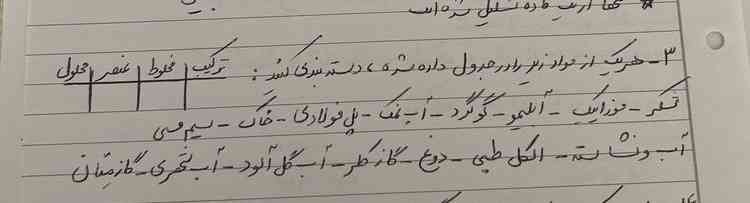 تنها از یک ماده تشکیل شده است
۳- هریک از مواد زیر را در جدول داده شده، دسته بندی کنید :
ترکیب | مخلوط | عنصر | محلول
شکر - موزاییک - آبلیمو - گوگرد - آب نمک - پل فولادی - خاک - سیم مسی
آب و نشاسته - الکل طبی - دوغ - گاز کلر - آب گل آلود - آب مقطر - گاز متان